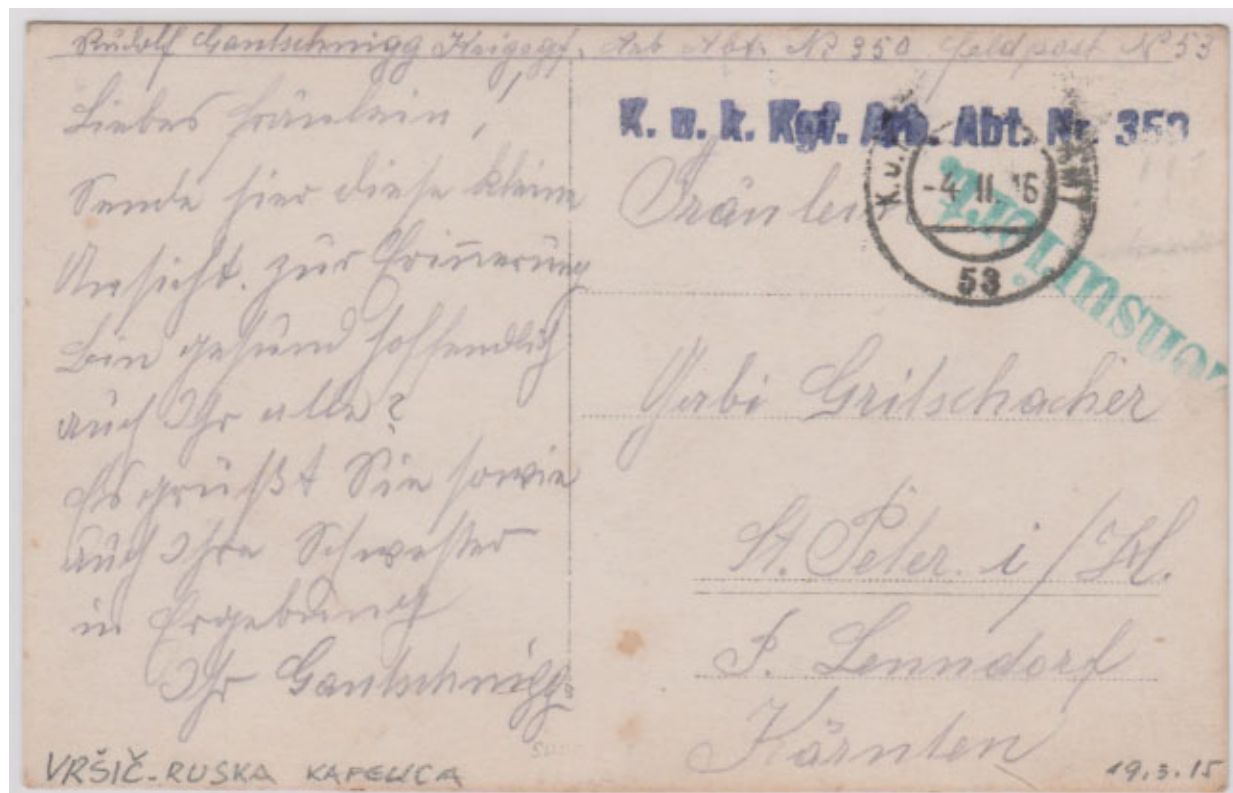 Rudolf Gantschnigg Krigsgf. Arb Abt. No 350 Feldpost No 53
Liebes Fräulein,
Sende hier diese kleine
Ansicht. zur Erinnerung
bin gesund hoffendlich
auch Ihr alle?
Es grüßt Sie sowie
auch Ihre Schwester
in Ergebung
Ihr Gantschnigg
K. u. k. Kgf. Arb. Abt. Nr. 350
-4 II. 16
53
Zensuriert
Fräulein
Gritschacher
St. Peter. i/H.
P. Lenndorf
Kärnten
VRŠIČ-RUSKA KAPELICA
19.3.15